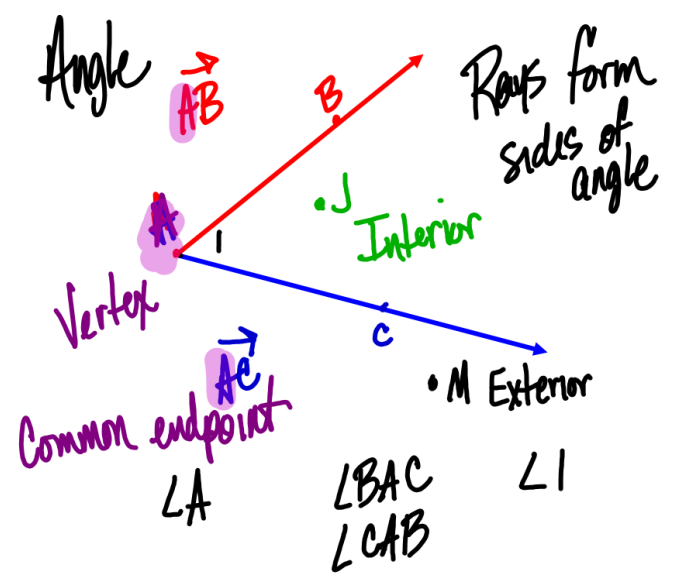 Angle
AB
B
Rays form
sides of
angle
A
1
J
Interior
Vertex
C
AC
M Exterior
Common endpoint
∠A
∠BAC
∠1
∠CAB